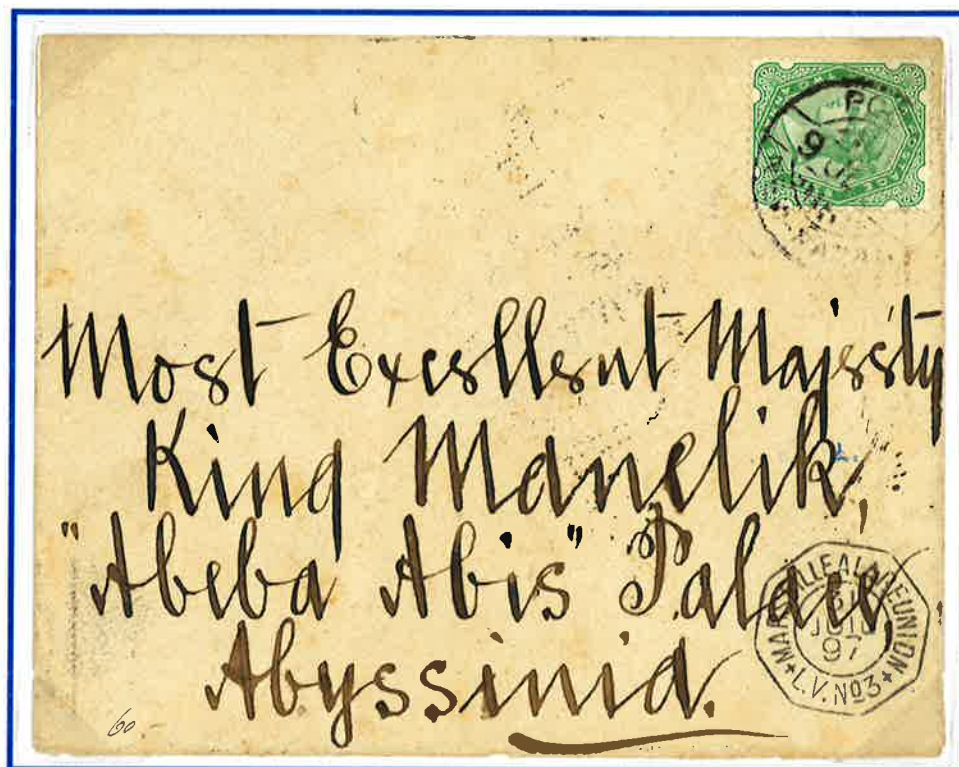 Most Excellent Majesty
King Manelik,
"Abeba Abis" Palace,
Abyssinia.
MARSEILLE A LA REUNION
97
+ L.V. Nº3 +
60